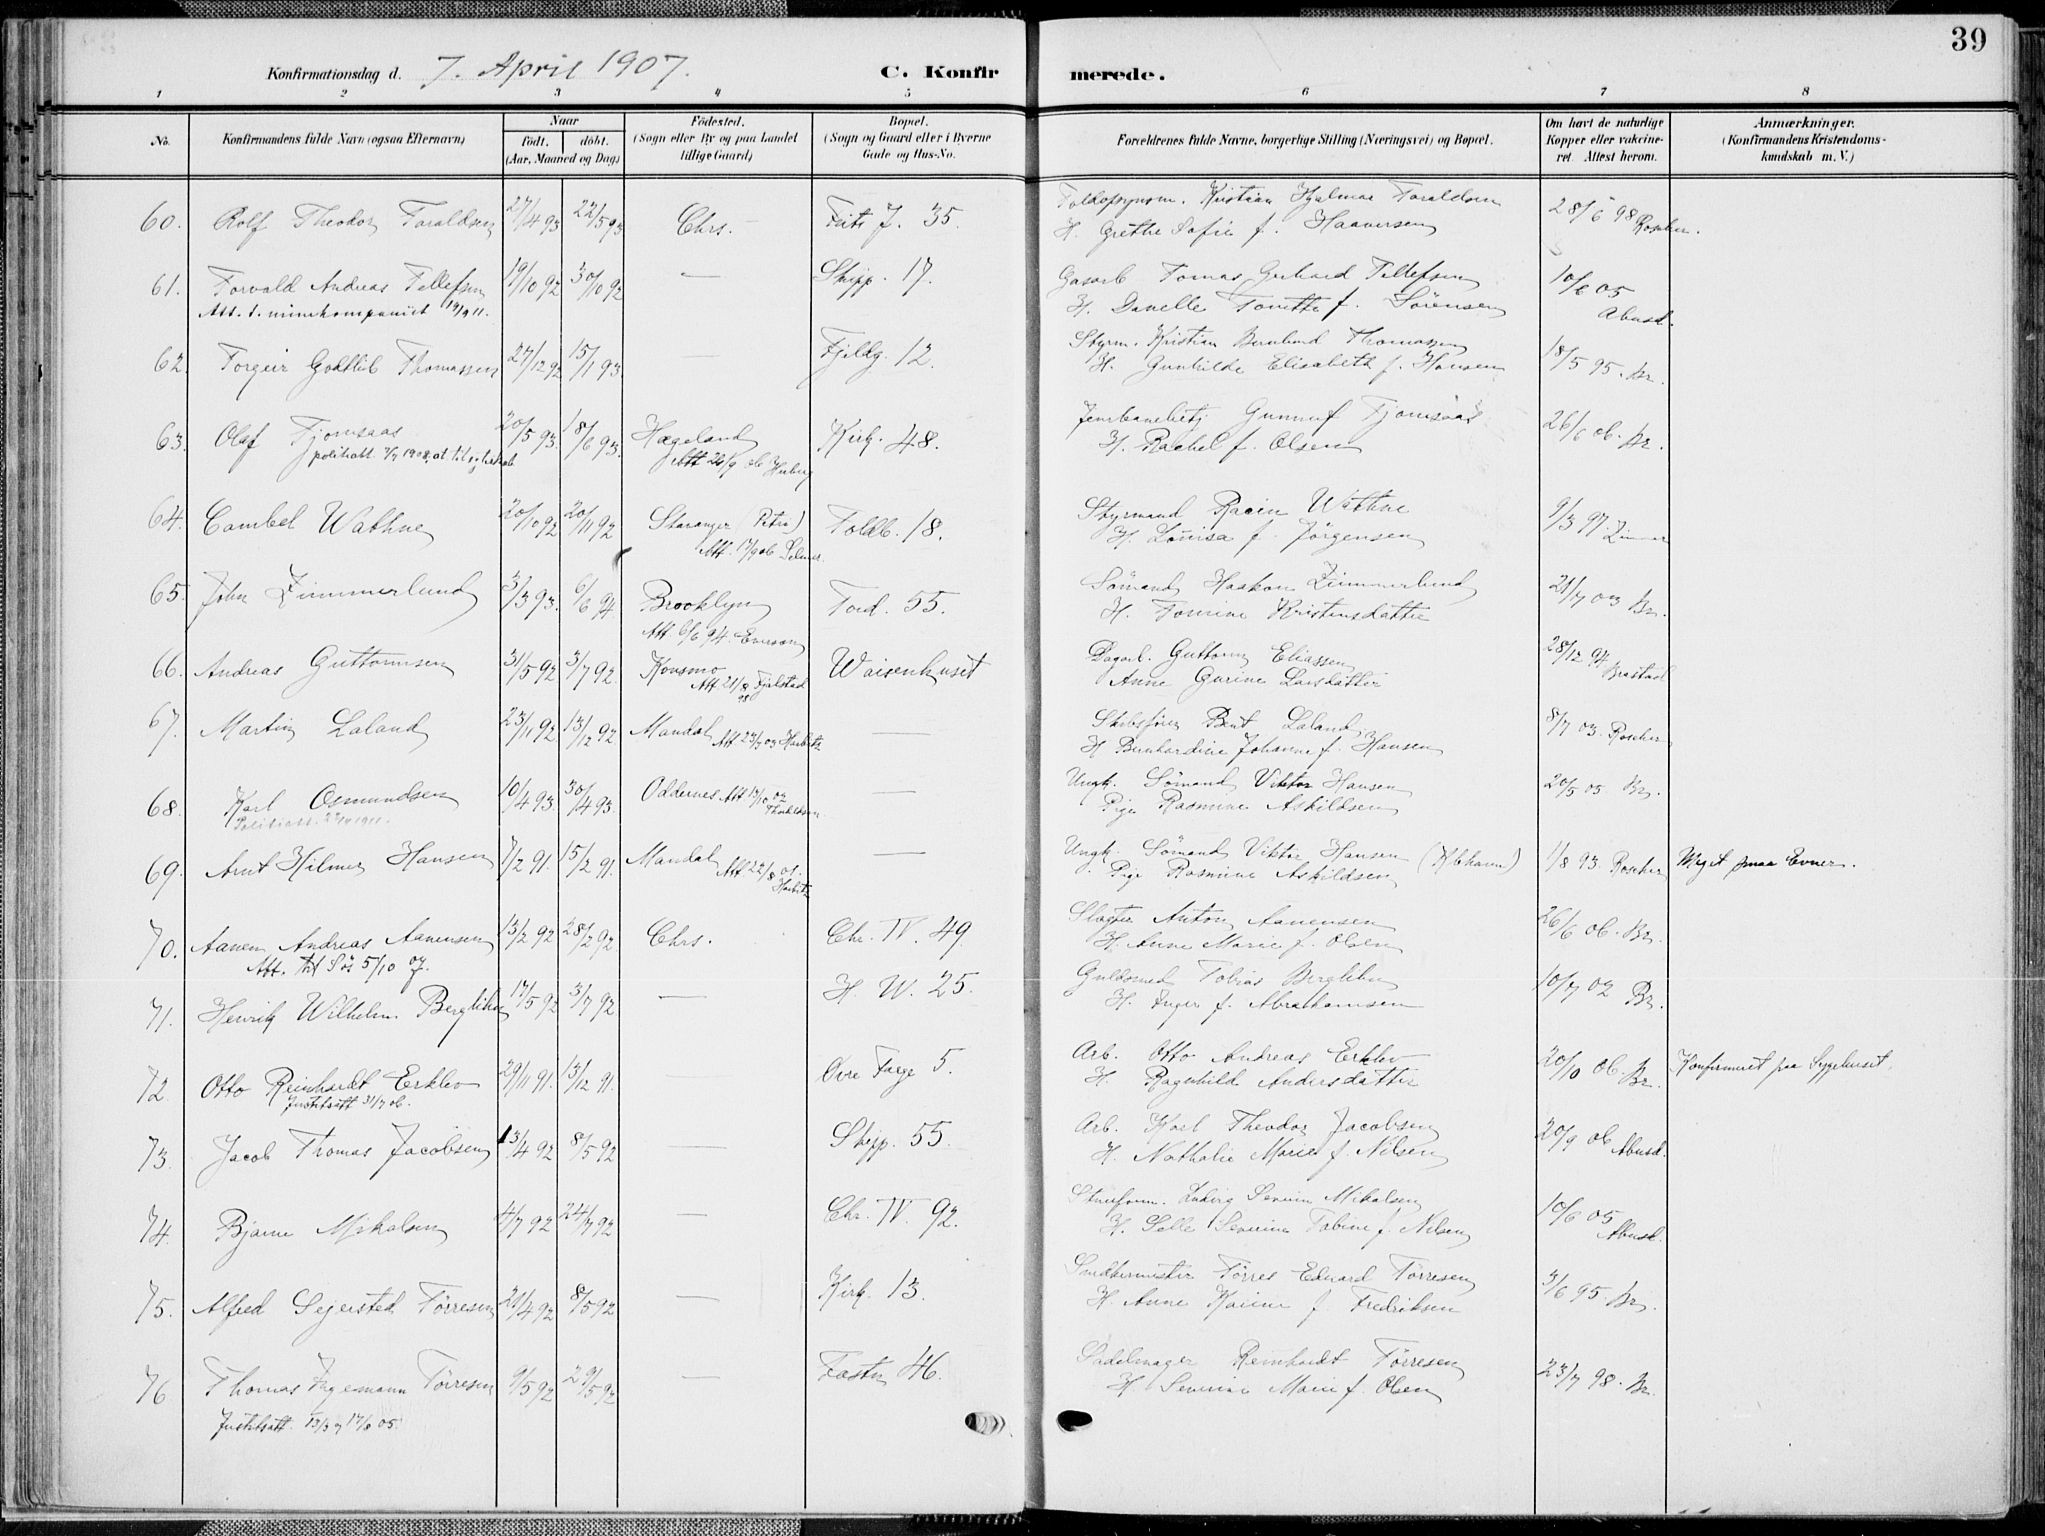 39
Konfirmationsdag d. 7. April 1907. C. Konfirmerede.
1 2 3 4 5 6 7 8
No. Konfirmandens fulde Navn (ogsaa Efternavn) Naar födt. döbt. (Aar, Maaned og Dag) Födested. (Sogn eller By og paa Landet tillige Gaard) Bopæl. (Sogn og Gaard eller i Byerne Gade og Hus-No. Forældrenes fulde Navne, borgerlige Stilling (Næringsvei) og Bopæl. Om havt de naturlige Kopper eller vakcineret. Attest herom. Anmærkninger. (Konfirmandens Kristendomskundskab m. V.)
60. Rolf Theodor Toraldsen 27/4 93 22/5 93 Chrs. 35. Kristian Hjalmar Toraldsen 28/6 98 Roscher.
H. Grethe Sofie f. Haaversen
61. Torvald Andreas Tellefsen 19/10 92 30/10 92 — Skipp. 17. Gasarb. Tomas Gerhard Tellefsen 10/6 05
Att. t. minekompaniet 19/9 11. H. Danelle Tomette f. Sörensen Abusd.
62. Torgeir Gottlieb Thomassen 27/12 92 15/1 93 — Fjeldg. 12. Styrm. Kristian Bernhard Thomassen 18/5 95. Br.
H. Gunhilde Elisabeth f. Hansen
63. Olaf Fjomsaas 20/5 93. 18/6 93. Hægeland Kirk. 48. Jernbanebetj Gunnuf Fjomsaas 26/6 06. Br.
Att 26/9 06 H. Rachel f. Olsen
64. Cambel Wathne 20/10 92 20/11 92 Stavanger (Petri) Toldb. 18. Styrmand Racin Wathne 9/3 97.
Att. 17/9 06 H. Louisa f. Jörgensen
65. John Zimmerlund 3/3 93. 6/6 94. Brooklyn Tord. 55. Sömand Haakon Zimmerlund 21/7 03 Br.
Att 6/6 94. Everson H. Tomine Kristensdatter
66. Andreas Guttormsen 31/5 92 3/7 92. Konsmo Waisenhuset Dagarb. Guttorm Eliassen 28/12 94 Brastad
Att. 21/8 98 Fjelstad Anne Gurine Larsdatter
67. Martin Laland 23/11 92 13/12 92 Mandal Att 23/3 03 Harbitz — Skibsförer Bent Laland 8/7 03. Roscher
H Bernhardine Johanne f. Hansen
68. Karl Osmundsen 10/4 93. 30/4 93. Oddernes Att — Ungk. Sömand Viktor Hansen 20/5 05 Br.
Pige Rasmine Askildsen
69. Arnt Hilmer Hansen 7/2 91. 15/2 91. Mandal Att. 22/8 01. Harbitz — Ungk. Sömand Viktor Hansen (Kbhavn) 1/8 93. Roscher Meget smaa Evner.
Pige Rasmine Askildsen
70. Aanen Andreas Aanensen 13/2 92 28/2 92 Chrs. Chr. IV. 49 Slagter Anton Aanensen 26/6 06. Br.
Att. til Sös 5/10 07. H. Anne Marie f. Olsen
71. Henrik Wilhelm Berglihn 17/5 92 3/7 92 — H. W. 25. Guldsmed Tobias Berglihn 10/7 02 Br.
H. Inger f. Abrahamsen
72. Otto Reinhardt Erklev 29/11 91. 13/12 91. — Övre Torge 5. Arb. Otto Andreas Erklev 20/10 06 Br. Konfirmeret paa Sygehuset.
Justitsatt 31/7 06. H. Ragnhild Andersdatter
73. Jacob Thomas Jacobsen 13/4 92 8/5 92 — Skipp. 55. Arb. Karl Theodor Jacobsen 20/9 06 Abusd.
H. Nathalie Marie f. Nilsen
74. Bjarne Mikalsen 4/7 92 24/7 92 — Chr. IV. 92. Ludvig Severin Mikalsen 10/6 05
H. Selle Severine Tobine f. Nilsen Abusd.
75. Alfred Sejersted Törresen 21/4 92 8/5 92 — Kirk. 13. Törres Edvard Törresen 3/6 95. Br.
H. Anne Karine f. Fredriksen
76. Thomas Ingemann Törresen 9/5 92 29/5 92 — Fæstn 46. Sadelmager Reinhardt Törresen 23/7 98. Br.
Justitsatt. H. Severine Marie f. Olsen